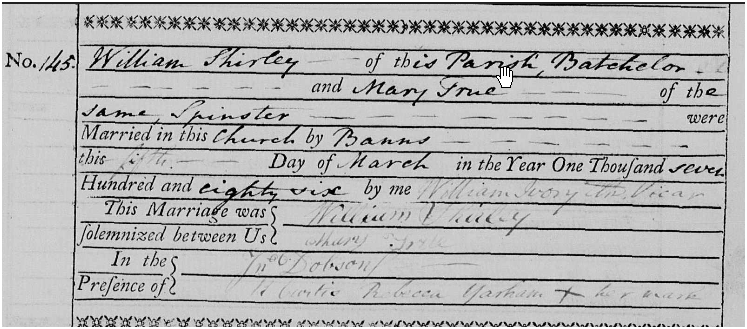 No. 145. William Shirley of this Parish, Batchelor
and Mary True of the
same, Spinster were
Married in this Church by Banns
this fifth Day of March in the Year One Thousand seven
Hundred and eighty six by me William Ivory Vicar
This Marriage was William Shirley
solemnized between Us Mary True
In the Jno Dobson
Presence of Curtis Rebecca Yarham + her mark